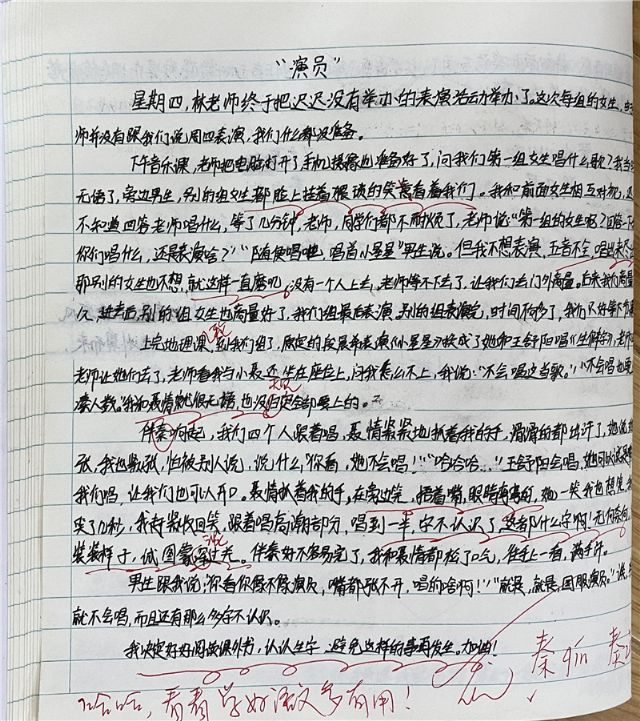 “演员”
星期四，林老师终于把迟迟没有举办的表演活动举办了。这次每组的女生，
师并没有跟我们说周四表演，我们什么都没准备。
下午音乐课，老师把电脑打开了，手机摄像也准备好了，问我们第一组女生唱什么歌？我
无语了，旁边男生，别的组女生都脸上挂着的笑看着我们。我和前面女生相互对视，
不知道回答老师唱什么，等了几分钟，老师，同学们都不耐烦了，老师说“第一组的女生呢？
你们唱什么，还是表演啥？”“随便唱吧，唱首小星星”男生说。但我不想表演，五音不全，唱出来
那别的女生也不想，就这样一直磨叽，没有一个人上去，老师等不下去了，让我们去门外商量，后来我们商量
久，进去后，别的组女生也商量好了，我们组最后表演，别的组表演完，时间不够了，我们只好等下
上完地理课，到我们组了，原定的表演小星星换成了她和王舒阳唱《生僻字》，
老师让她们去了，老师看我与小聂还坐在座位上，问我怎么不上，我说：“不会唱这首歌。”“不会唱也要
凑人数。”我和聂情就很无措，也没全部要上的。
伴奏响起，我们四个人跟着唱，聂情紧紧地扒着我的手，滑滑的都出汗了，她
张，我也紧张，怕被别人说，说什么，“你看，她不会唱！”“哈哈哈…”王舒阳会唱，她
我们唱，让我们也可以开口。聂情扒着我的手，在旁边笑，捂着嘴，眼睛弯弯的，她一笑我也想笑，
笑了几秒，我赶紧收回笑，跟着唱高潮部分，唱到一半，字不认识了，这都什么字啊！无何奈何，
装装样子，试图蒙混过关。伴奏好不容易完了，我和聂情都松了口气，往手上一看，满手汗。
男生跟我说：“你看你像不像演员，嘴都张不开，唱的啥啊！”“就是，就是，国服演员。”
就不会唱，而且还有那么多字不认识。
我决定好好阅读课外书，认认生字，避免这样的事再发生。加油！
秦 秦
哈哈，看看学好语文多有用！